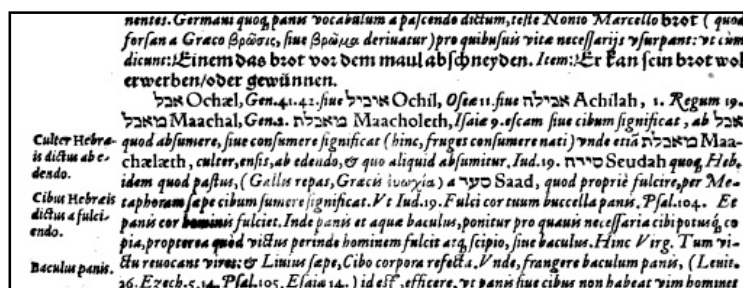 nentes. Germani quoq; panis vocabulum a pascendo dictum, teste Nonio Marcello brot ( quod
forsan a Græco βρῶσις, siue βρῶμα deriuatur) pro quibusuis vitæ necessarijs vsurpant: vt cùm
dicunt: Einem das brot vor dem maul abschneyden. Item: Er kan sein brot wol
erwerben/oder gewünnen.
אכל Ochæl, Gen. 41. 42. siue Ochil, Oseæ 11. siue אכילה Achilah, 1. Regum 19.
Maachal, Gen. 2. Maacholeth, Isaiæ 9. escam siue cibum significat, ab אכל
Culter Hebræis dictus ab edendo.
quod absumere, siue consumere significat (hinc, fruges consumere nati) vnde etiã Maa-
chælæth, culter, ensis, ab edendo, & quo aliquid absumitur. Iud. 19. Seudah quoq; Heb.
idem quod pastus, (Gallis repas, Græcis ) a Saad, quod propriè fulcire, per Me-
Cibus Hebræis dictus a fulciendo.
taphoram sæpe cibum sumere significat. Vt Iud. 19. Fulci cor tuum buccella panis. Psal. 104. Et
panis cor hominis fulciet. Inde panis et aquæ baculus, ponitur pro quauis necessaria cibi potusq; co
pia, propterea quod victus perinde hominem fulcit atq; scipio, siue baculus. Hinc Virg. Tum vi-
Baculus panis.
ctu reuocant vires: & Liuius sæpe, Cibo corpora refecta. Vnde, frangere baculum panis, (Leuit.
26. Ezech. 5. 14. Psal. 105. Esaiæ 14. ) id est, efficere, vt panis siue cibus non habeat vim hominet